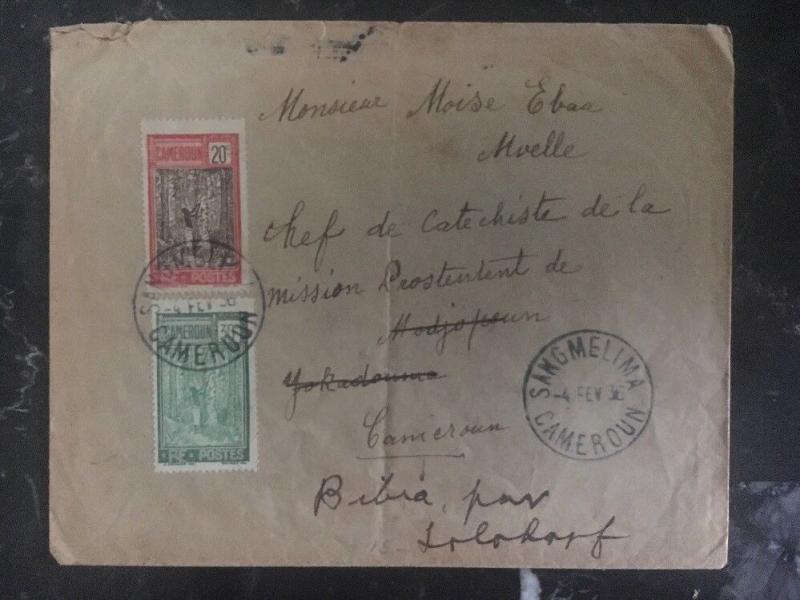 Monsieur Moïse Ebaa
Mvelle
Chef de Catéchiste de la
Mission Prostentent de
Modjopoun
Yokadouma
Cameroun
Bibia, par
Lolodorf
CAMEROUN 20c
RF POSTES
SANGMELIMA
-4 FEV 36
CAMEROUN
CAMEROUN 30c
RF POSTES
SANGMELIMA
-4 FEV 36
CAMEROUN